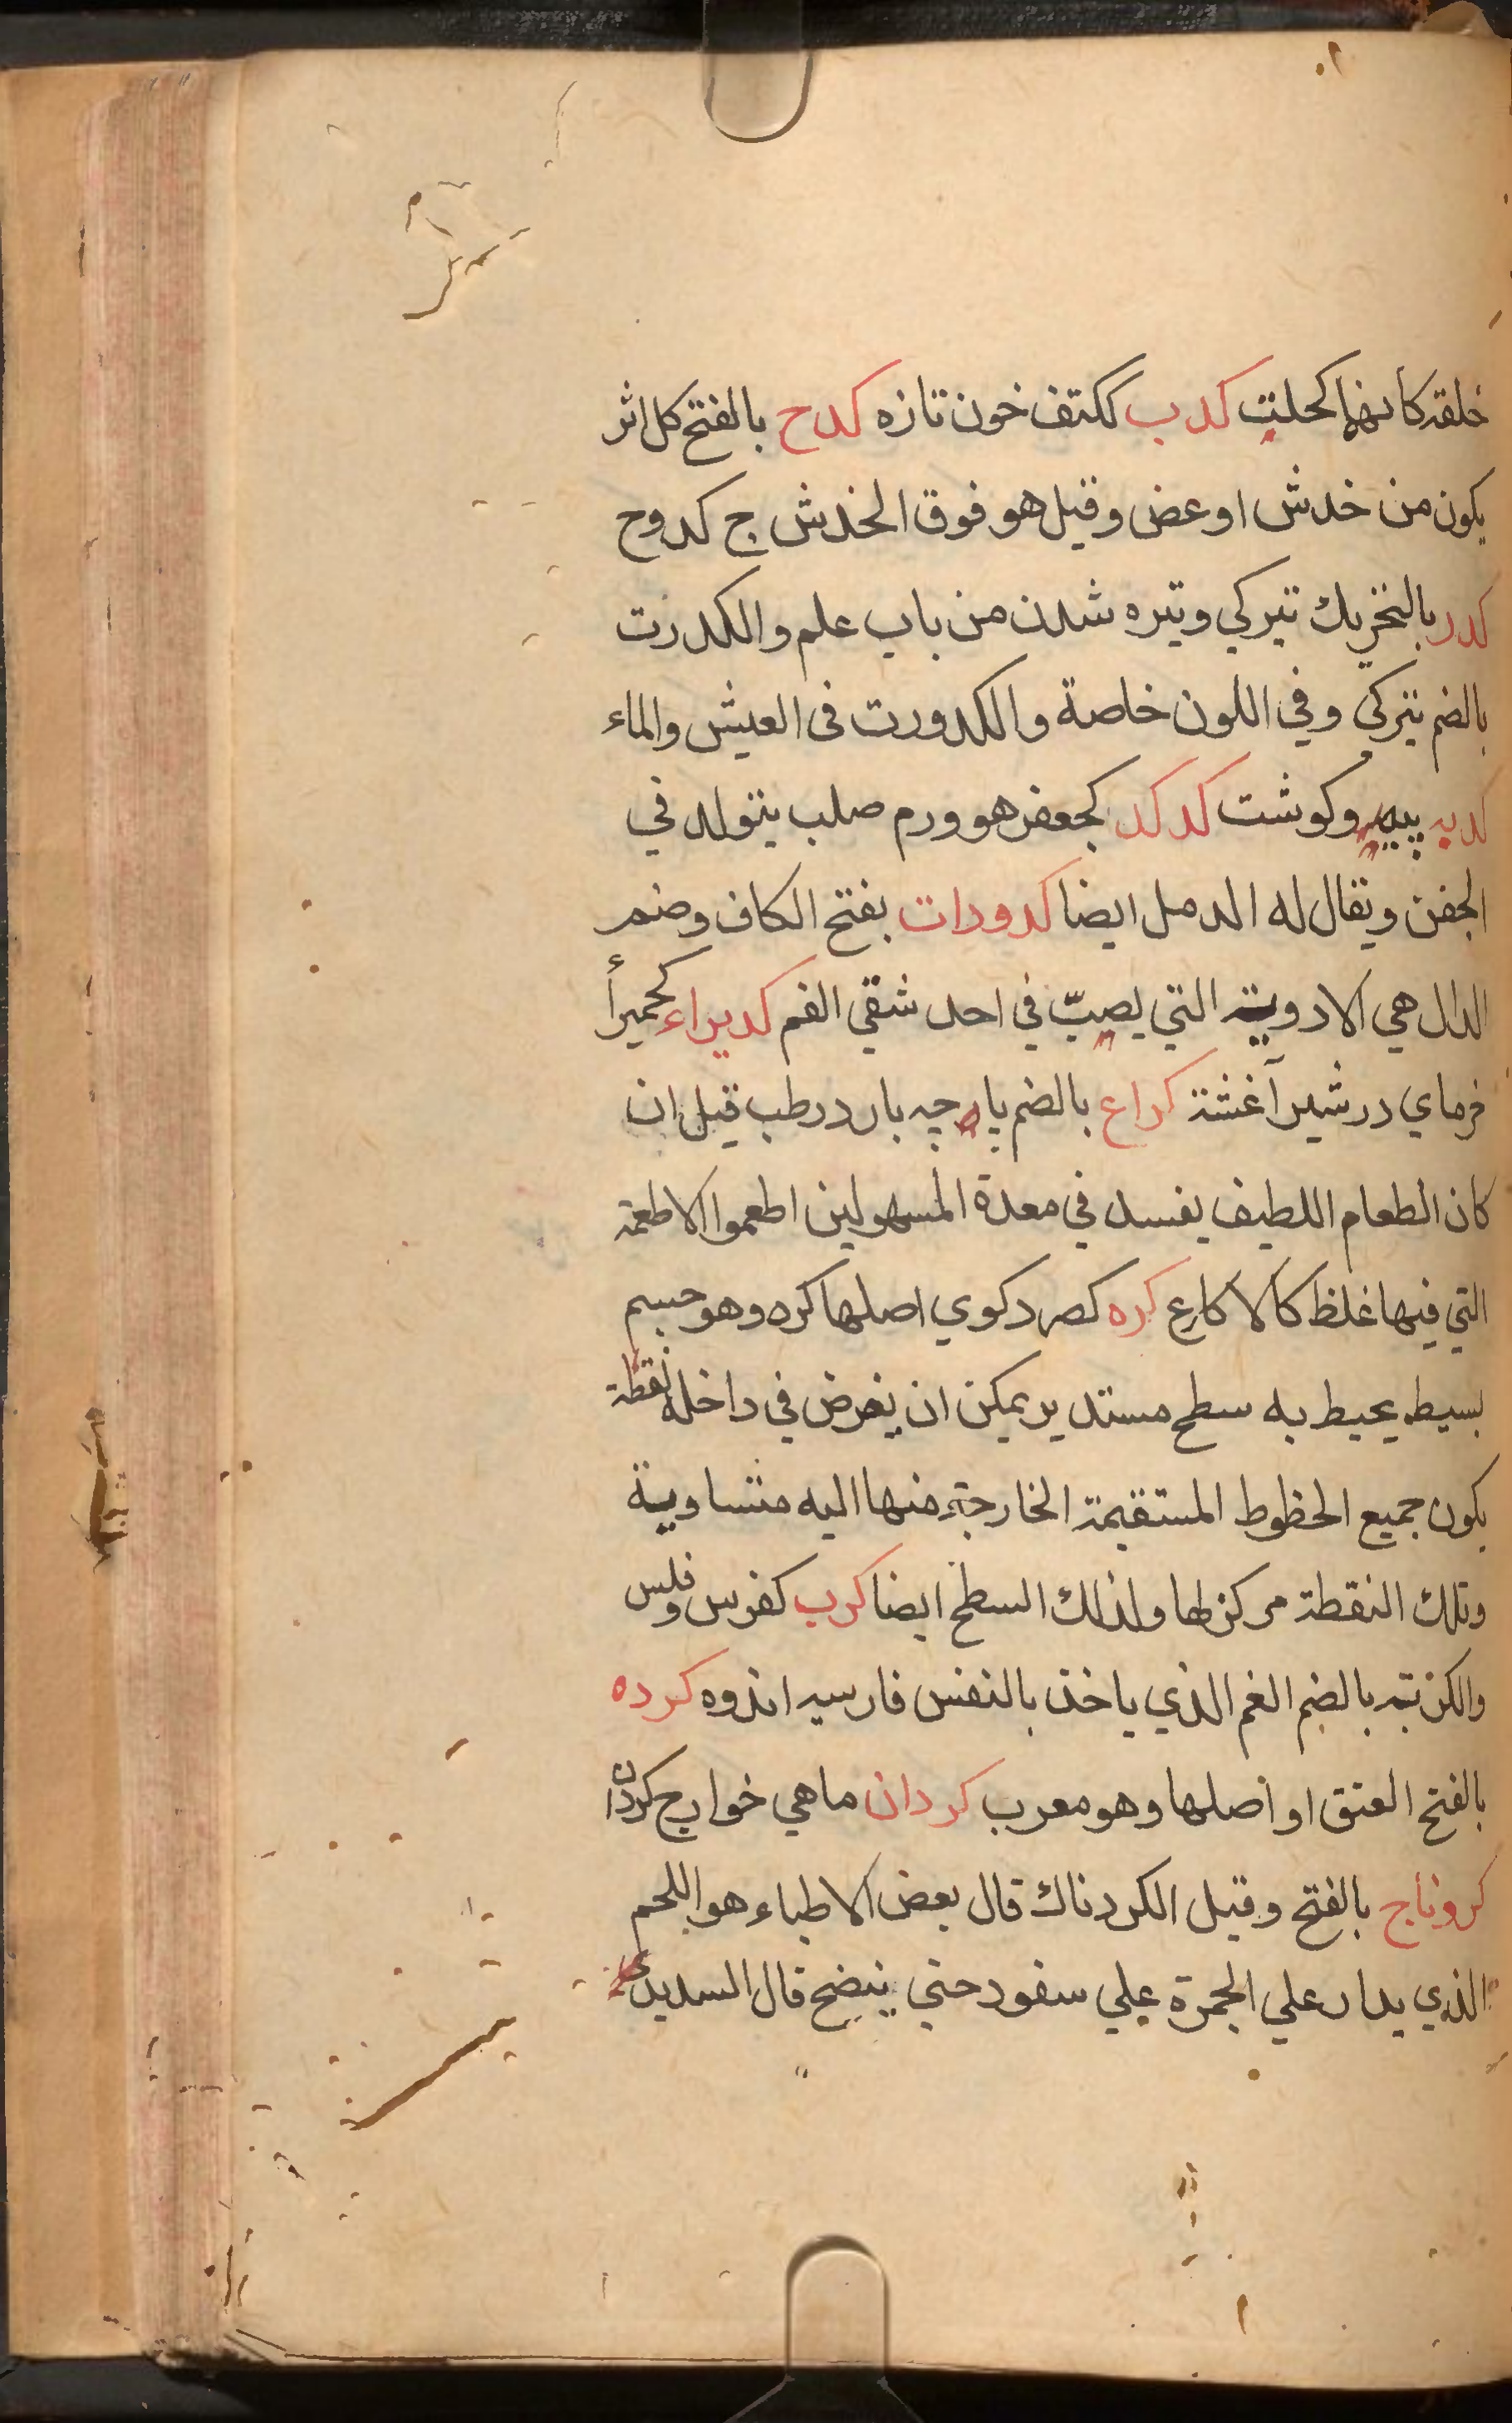 خلقة كأنها كحلت كدب ككتف خون تازه كدح بالفتح كل اثر
يكون من خدش او عض وقيل هو فوق الخدش ج كدوح
كدر بالتحريك تيركي وتيره شدن من باب علم والكدرت
بالضم تيركي وفي اللون خاصة والكدورت فى العيش والماء
كديه پيه وكوشت كدكد كجعفر هو ورم صلب يتولد في
الجفن ويقال له الدمل ايضا كدودات بفتح الكاف وضم
الدال هي الادوية التي يصبّ في احد شقي الفم كديراء كحميرأ
خرماي در شير آغشته كراع بالضم پارچه بارد رطب قيل ان
كان الطعام اللطيف يفسد في معدة المسهولين اطعموا الاطعمة
التي فيها غلظ كالاكارع كره كصرد كوي اصلها كره وهو جسم
بسيط يحيط به سطح مستدير يمكن ان يفرض في داخله نقطة
يكون جميع الخطوط المستقيمة الخارجة منها اليه متساوية
وتلك النقطة مركز لها ولذلك السطح ايضا كرب كفرس وفلس
والكربته بالضم الغم الذي ياخذ بالنفس فارسيه اندوه كرده
بالفتح العنق او اصلها وهو معرب كردان ماهي خوارج كردان
كروناج بالفتح وقيل الكردناك قال بعض الاطباء هو اللحم
الذي يدار علي الجمرة علي سفود حتي ينضج قال السديدى